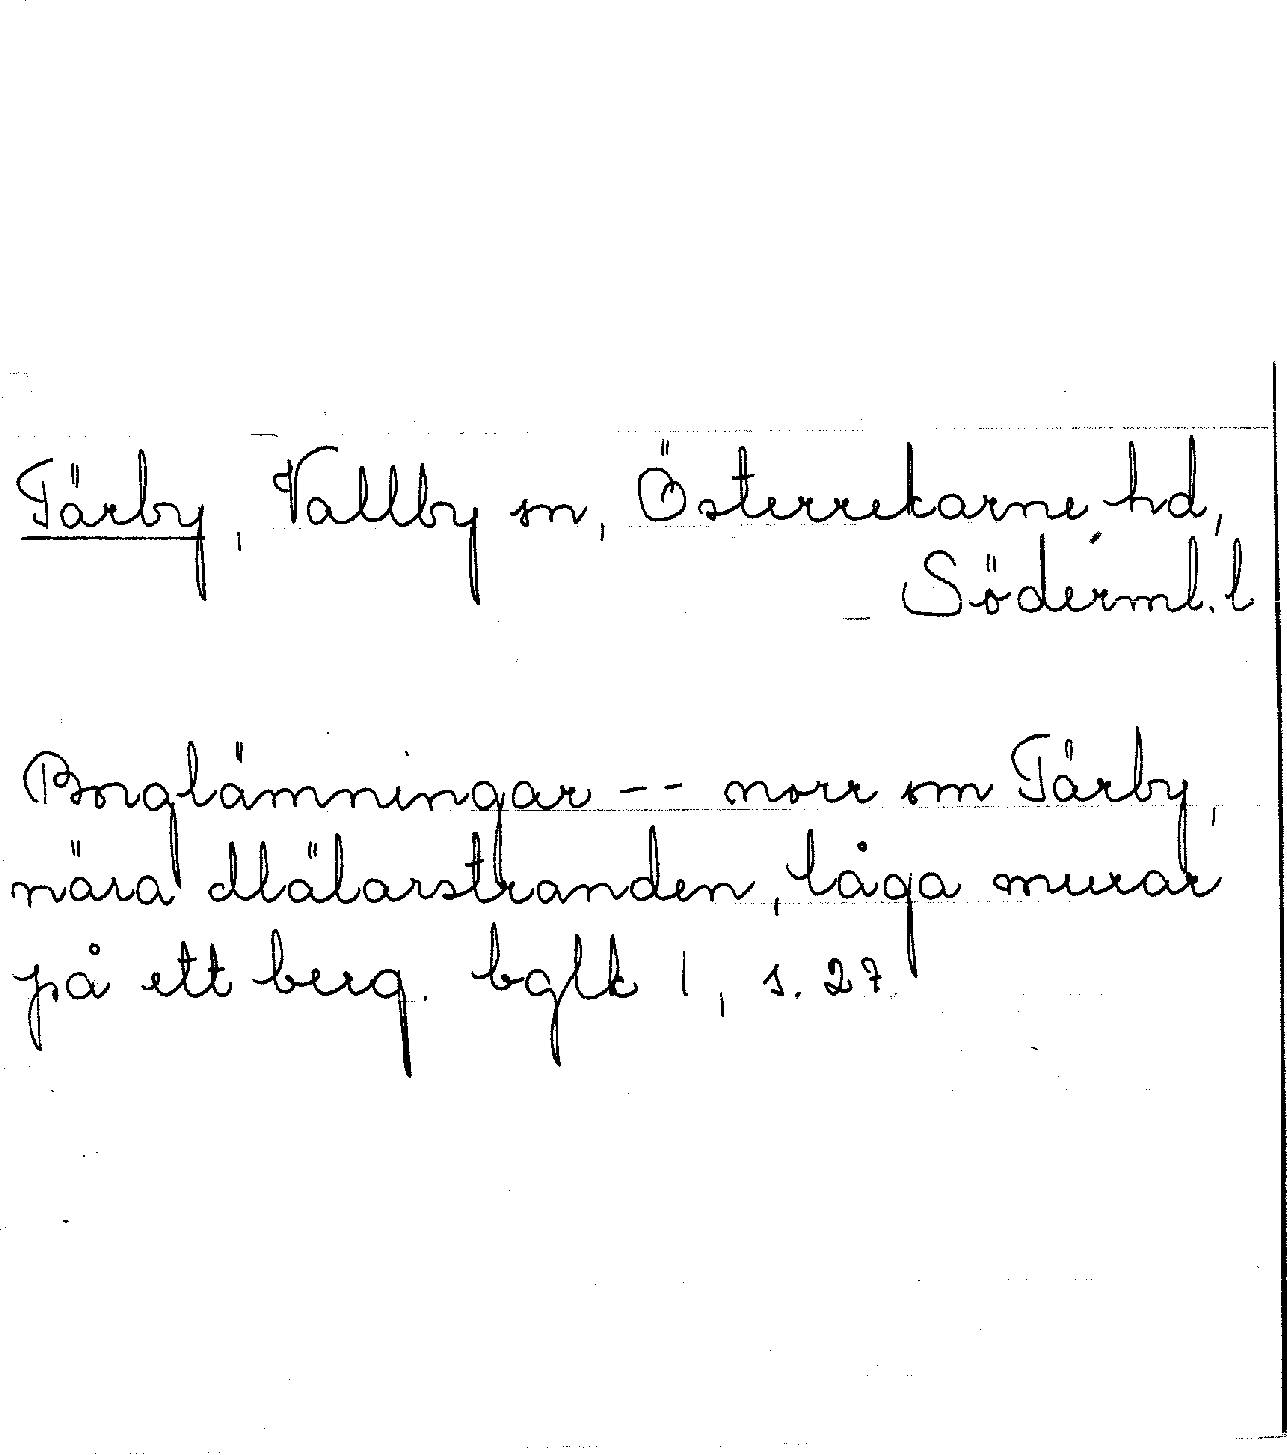 Tärby, Vallby sn, Österrekarne hd,
Söderml. l
Borglämningar -- norr om Tärby,
nära Mälarstranden, låga murar
på ett berg. bglk 1, s. 27